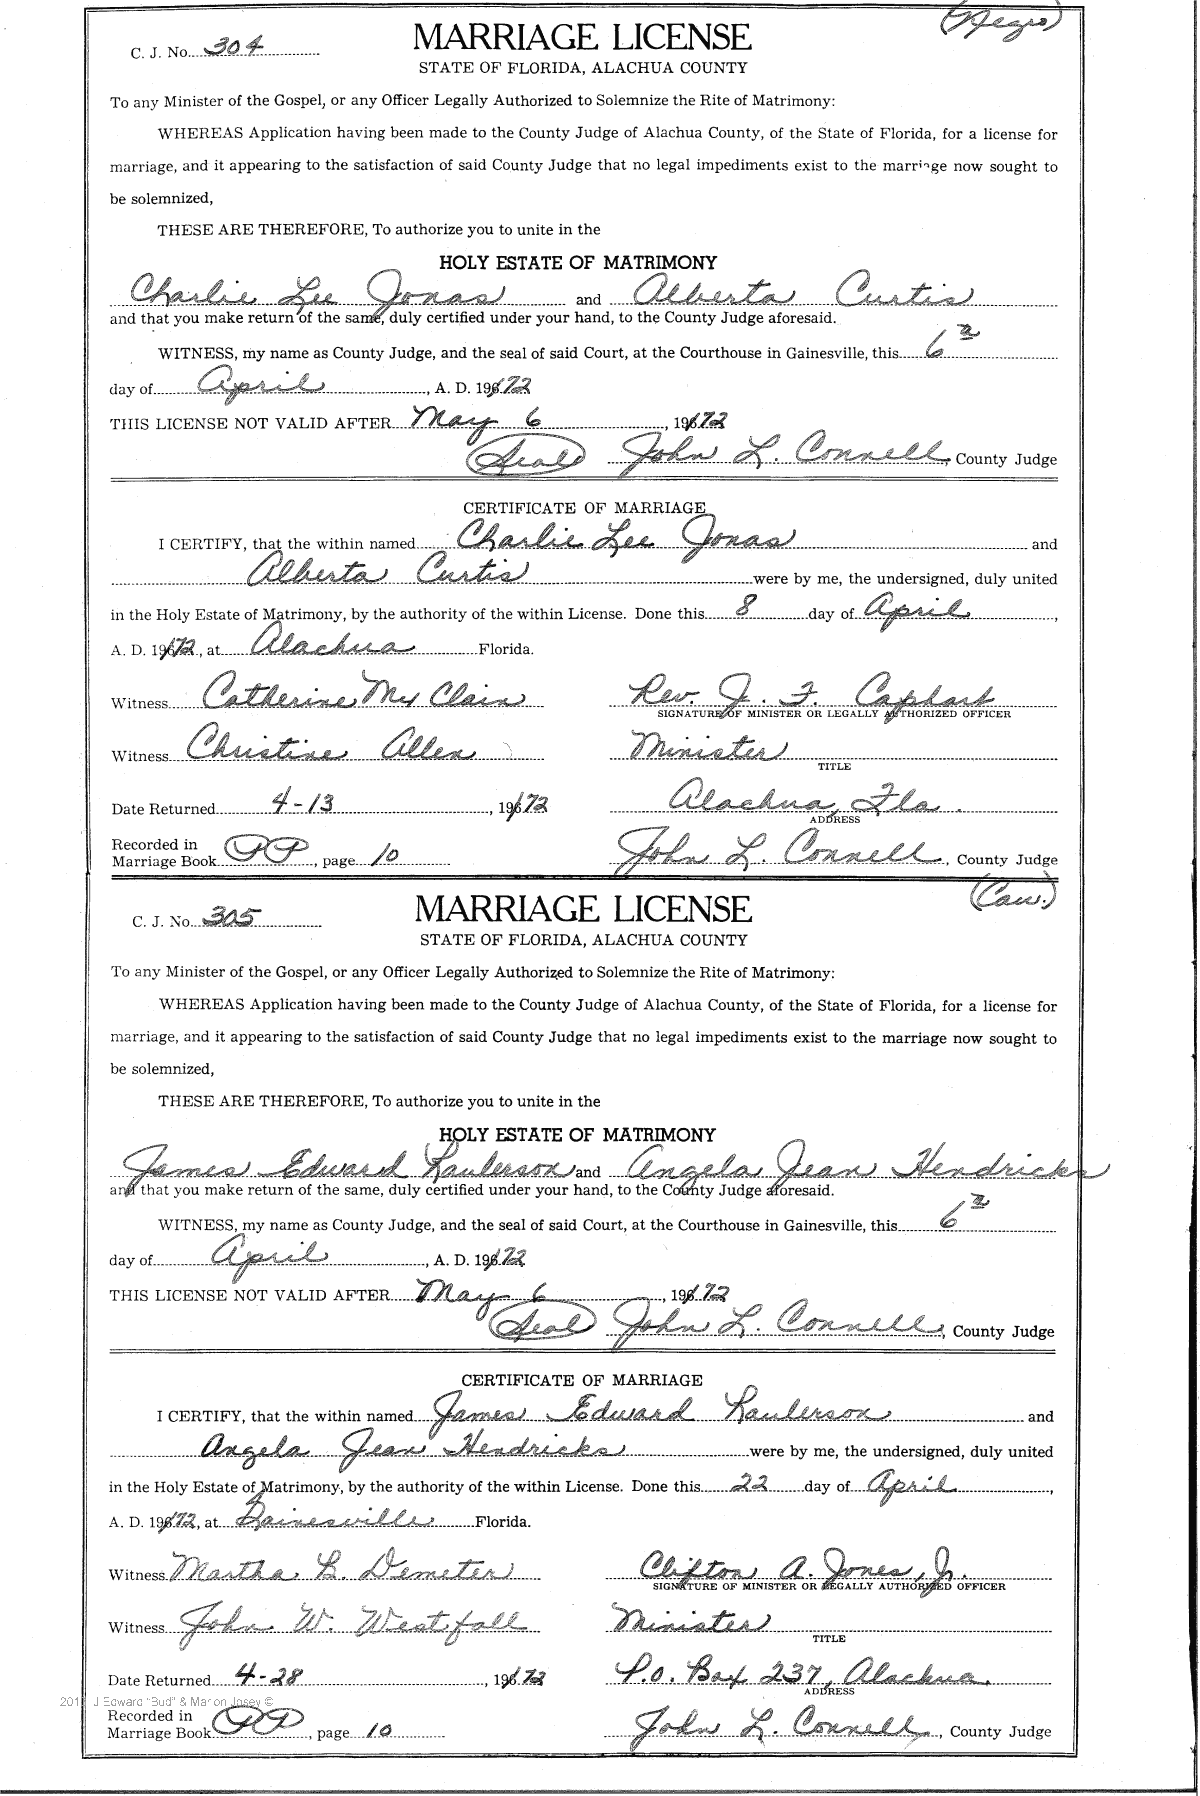 (Negro)
C. J. No. 304 MARRIAGE LICENSE
STATE OF FLORIDA, ALACHUA COUNTY
To any Minister of the Gospel, or any Officer Legally Authorized to Solemnize the Rite of Matrimony:
WHEREAS Application having been made to the County Judge of Alachua County, of the State of Florida, for a license for
marriage, and it appearing to the satisfaction of said County Judge that no legal impediments exist to the marriage now sought to
be solemnized,
THESE ARE THEREFORE, To authorize you to unite in the
HOLY ESTATE OF MATRIMONY
Charlie Lee Jonas and Alberta Curtis
and that you make return of the same, duly certified under your hand, to the County Judge aforesaid.
WITNESS, my name as County Judge, and the seal of said Court, at the Courthouse in Gainesville, this 6
day of April, A. D. 1972
THIS LICENSE NOT VALID AFTER May 6, 1972
(Seal) John L. Connell, County Judge
CERTIFICATE OF MARRIAGE
I CERTIFY, that the within named Charlie Lee Jonas and
Alberta Curtis were by me, the undersigned, duly united
in the Holy Estate of Matrimony, by the authority of the within License. Done this 8 day of April,
A. D. 1972, at Alachua Florida.
Witness Catherine Mc Clain Rev. J. F. Caphart
SIGNATURE OF MINISTER OR LEGALLY AUTHORIZED OFFICER
Witness Christine Allen Minister
TITLE
Date Returned 4-13, 1972 Alachua, Fla.
ADDRESS
Recorded in
Marriage Book PP, page 10 John L. Connell, County Judge
(Cau.)
C. J. No. 305 MARRIAGE LICENSE
STATE OF FLORIDA, ALACHUA COUNTY
To any Minister of the Gospel, or any Officer Legally Authorized to Solemnize the Rite of Matrimony:
WHEREAS Application having been made to the County Judge of Alachua County, of the State of Florida, for a license for
marriage, and it appearing to the satisfaction of said County Judge that no legal impediments exist to the marriage now sought to
be solemnized,
THESE ARE THEREFORE, To authorize you to unite in the
HOLY ESTATE OF MATRIMONY
James Edward Raulerson and Angela Jean Hendricks
and that you make return of the same, duly certified under your hand, to the County Judge aforesaid.
WITNESS, my name as County Judge, and the seal of said Court, at the Courthouse in Gainesville, this 6
day of April, A. D. 1972
THIS LICENSE NOT VALID AFTER May 6, 1972
(Seal) John L. Connell, County Judge
CERTIFICATE OF MARRIAGE
I CERTIFY, that the within named James Edward Raulerson and
Angela Jean Hendricks were by me, the undersigned, duly united
in the Holy Estate of Matrimony, by the authority of the within License. Done this 22 day of April,
A. D. 1972, at Gainesville Florida.
Witness Martha L. Demeter Clifton A. Jones, Jr.
SIGNATURE OF MINISTER OR LEGALLY AUTHORIZED OFFICER
Witness John W. Westfall Minister
TITLE
Date Returned 4-28, 1972 P.O. Box 237, Alachua.
ADDRESS
J Edward "Bud" & Marion Josey ©
Recorded in
Marriage Book PP, page 10 John L. Connell, County Judge